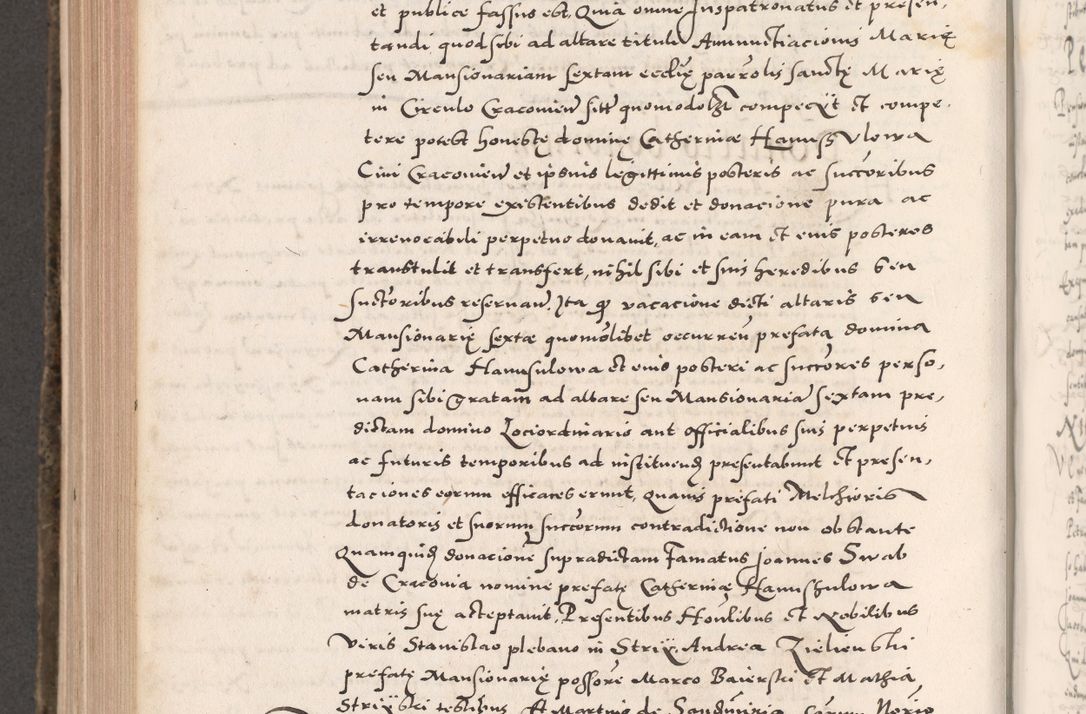 et publice fassus est, Quia omne Juspatronatus et presen,
tandi quod sibi ad altare tituli Annunctiacionis Marię
seu Mansionariam sextam ecclię parrolis sanctę Marię
in Circulo Cracovien sitt quomodolꝫ competÿt et compe,
tere potest honestę dominę Catherinæ Hanuss Vlowa
Civi Cracovien et ipsius legittimis posteris ac succoribus
pro tempore existentibus dedit et donacione pura ac
irrevocabili perpetuo donavit, ac in eam et eius posteros
transtulit et transfert, nihil sibi et suis heredibus seu
suctoribus reservan. Ita ꝙ vacacione dicti altaris seu
Mansionarię sextæ quomolibet occurren prefata domina
Catherina Hanusulowa et eius posteri ac succores perso,
nam sibi gratam ad altare seu Mansionaria sextam pre,
dictam domino Lociordinario aut officialibus suis perpetuis
ac futuris temporibus ad instituend presentabunt et presen,
taciones eorum efficaces erunt, quavis prefati Melchioris
donatoris et suorum succorum contradictione non obstante
Quamquid donacione supradictam famatus Joannes Swab
de Cracovia nomine prefatę Catherinę Hanushulowa
matris suę acceptavit, Presentibus Honlibus et Nobilibus
viris Stanislao plebano in Strÿx, Andrea Zielienski
prefatę Mansionarię possore Marco Baierski et Mathia
Strixski testibus
de Sandomiria